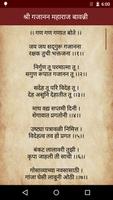 6:00
श्री गजानन महाराज बावन्नी
।। गण गण गणात बोते ।।
जय जय सद्गुरु गजानना
रक्षक तुची भक्तजना ।।१।।
निर्गुण तू परमात्मा तू ।
सगुण रूपात गजानन तू ।।२।।
सदेह तू परि विदेह तू ।
देह असूनि देहातीत तू ।।३।।
माघ वद्य सप्तमी दिनी ।
शेगांवात प्रगटोनी ।।४।।
उष्ट्या पत्रावळी निमित्त ।
विदेहत्व तव हो प्रगट ।।५।।
बंकट लालावरी तुझी ।
कृपा जाहली ती साची ।।६।।
गांजा घेसी लावूनी ओठी ।।७।।